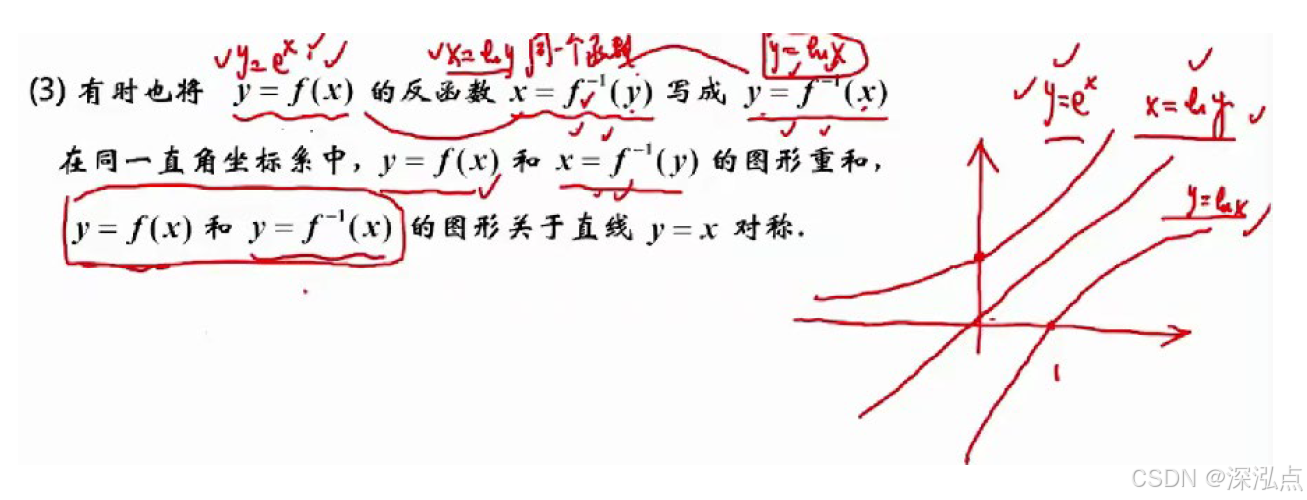 y=eˣ x=ln y 同一个函数 y=ln x
(3) 有时也将 y = f(x) 的反函数 x = f⁻¹(y) 写成 y = f⁻¹(x)
在同一直角坐标系中, y = f(x) 和 x = f⁻¹(y) 的图形重和,
y = f(x) 和 y = f⁻¹(x) 的图形关于直线 y = x 对称.
y=eˣ x=ln y
y=ln x
1
CSDN @深泓点